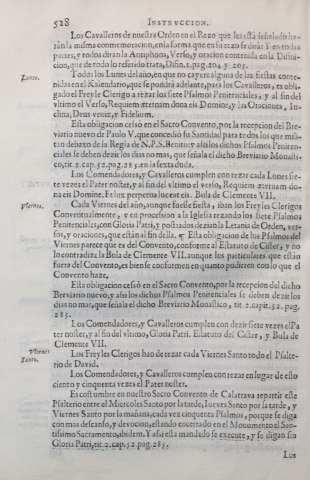 528 INSTRVCCION.
Los Cavalleros de nuestra Orden en el Rezo que les está señalado ha-
rán la misma commemoracion, en la forma que en su rezo se dirá: Y en todas
partes, y todos diran la Antiphona, Verso, y oracion contenida en la Difini-
cion, que de todo lo referido trata, Difin. 2. pag. 204. y 205.
Lunes. Todos los Lunes del año, en que no cayere alguna de las fiestas conte-
nidas en el Kalendario, que se pondrá adelante, para los Cavalleros, es obli-
gado el Freyle Clerigo a rezar los siete Psalmos Penitenciales, y al fin del
vltimo el Verso, Requiem æternam dona eis Domine, y las Oraciones, In-
clina, Deus veniæ, y Fidelium.
Esta obligacion cessó en el Sacro Convento, por la recepcion del Bre-
viario nuevo de Paulo V. que concedió su Santidad para todos los que mili-
tan debaxo de la Regla de N. P. S. Benito: y assi los dichos Psalmos Peniten-
ciales se deben dezir los dias no mas, que señala el dicho Breviario Monasti-
co, tit. 2. cap. 52. pag. 285. en la sexta duda.
Los Comendadores, y Cavalleros cumplen con rezar cada Lunes sie-
te vezes el Pater noster, y al fin del vltimo el verso, Requiem æternam do-
na eis Domine. Et lux perpetua luceat eis. Bula de Clemente VII.
Viernes. Cada Viernes del año, aunque fuesse fiesta, iban los Freyles Clerigos
Conventualmente, y en procession a la Iglesia rezando los siete Psalmos
Penitenciales, con Gloria Patri, y postrados dezian la Letania de Orden, ver-
sos, y oraciones, que están al fin della. Esta obligacion de los Psalmos del
Viernes parece que es del Convento, conforme al Estatuto de Cister, y no
lo contradize la Bula de Clemente VII. aunque los particulares que están
fuera del Convento, es bien se conformen en quanto pudieren con lo que el
Convento haze.
Esta obligacion cessó en el Sacro Convento, por la recepcion del dicho
Breviario nuevo, y assi los dichos Psalmos Penitenciales se deben dezir los
dias no mas, que señala el dicho Breviario Monastico, tit. 2. capit. 52. pag.
285.
Los Comendadores, y Cavalleros cumplen con dezir siete vezes el Pa-
ter noster, y al fin del vltimo, Gloria Patri. Estatuto del Cister, y Bula de
Clemente VII.
Viernes Santo. Los Freyles Clerigos han de rezar cada Viernes Santo todo el Psalte-
rio de David.
Los Comendadores, y Cavalleros cumplen con rezar en lugar de esto
ciento y cinquenta vezes el Pater noster.
Es costumbre en nuestro Sacro Convento de Calatrava repartir este
Psalterio entre el Miercoles Santo por la tarde, Iueves Santo por la tarde, y
Viernes Santo por la mañana, cada vez cinquenta Psalmos, porque se diga
con mas descanso, y devocion, estando encerrado en el Monumento el San-
tissimo Sacramento, ibidem. Y assi está mandado se execute, y se digan sin
Gloria Patri, tit. 2. cap. 52. pag. 285.
Los